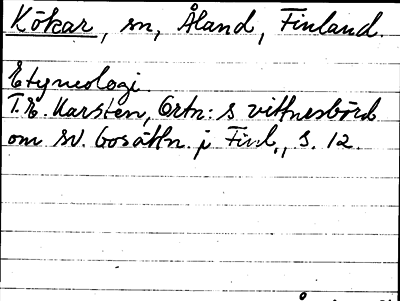 Kökar, sn, Åland, Finland.
Etymologi.
T. E. Karsten, Ortn:s vittnesbörd
om sv. bosättn. i Finl., s. 12.